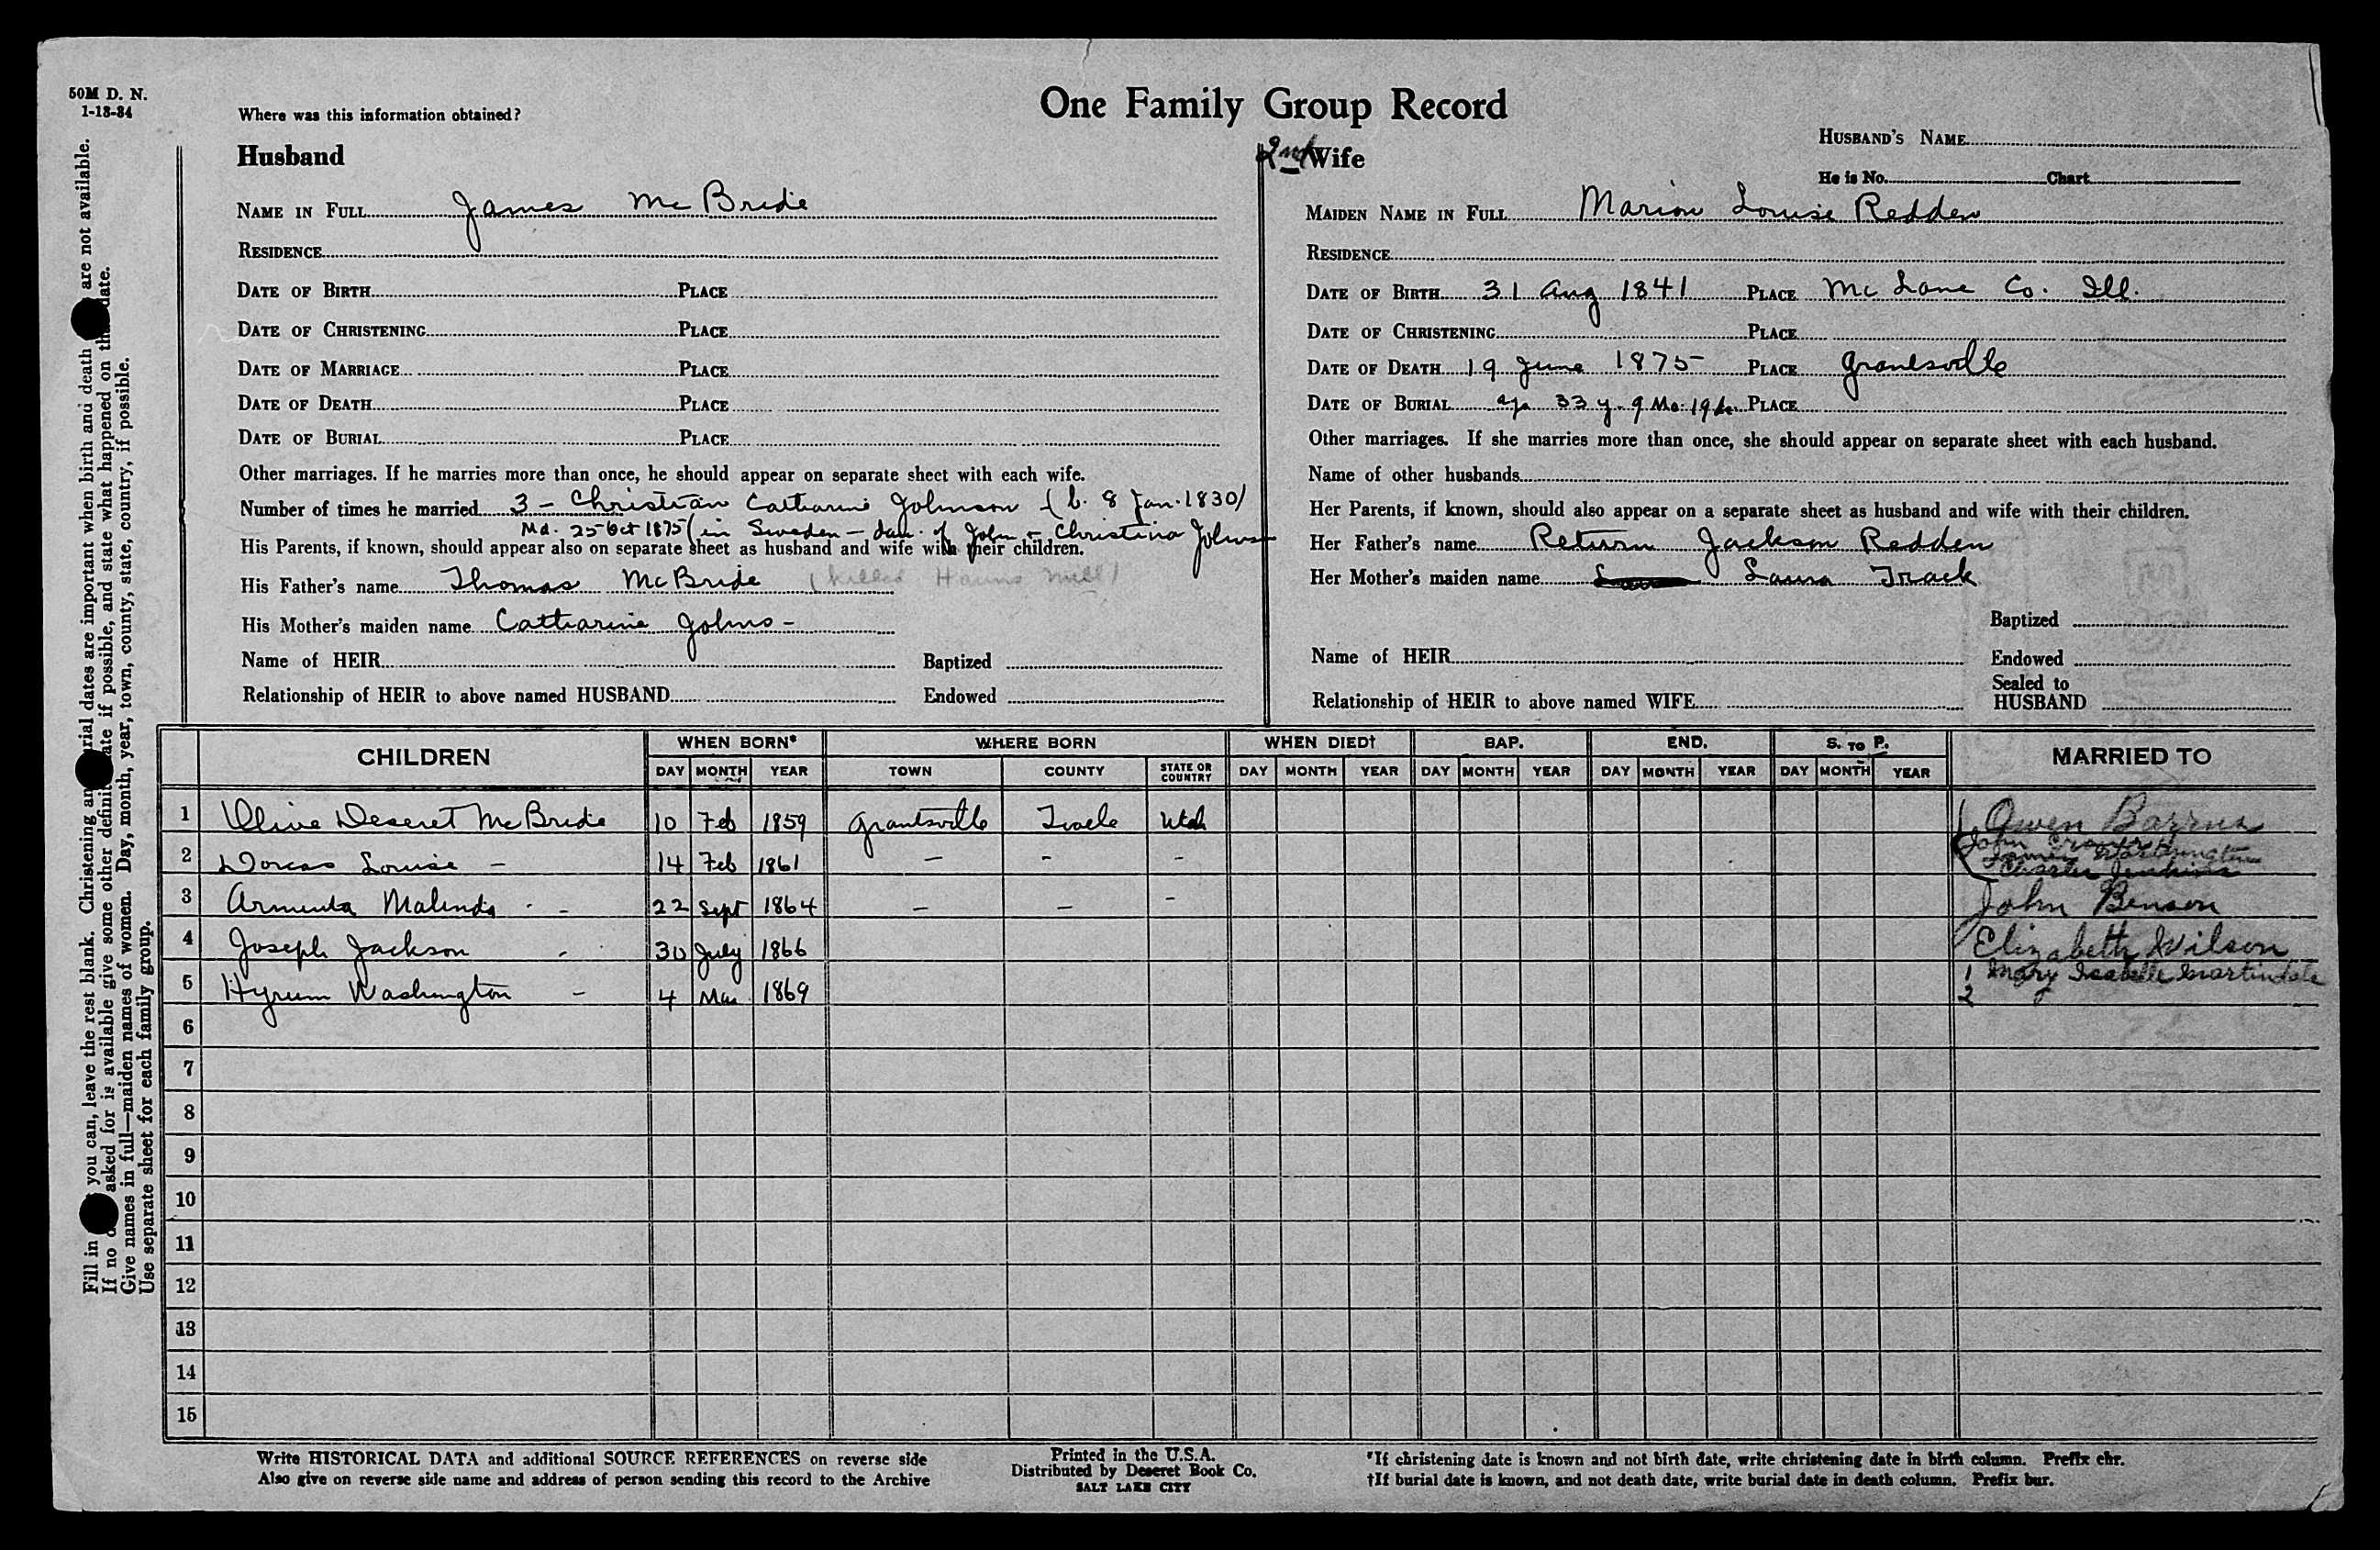 50M D. N.
1-13-34
Where was this information obtained?
One Family Group Record
HUSBAND'S NAME
He is No. Chart
Husband
2nd Wife
NAME IN FULL James McBride
RESIDENCE
DATE OF BIRTH PLACE
DATE OF CHRISTENING PLACE
DATE OF MARRIAGE PLACE
DATE OF DEATH PLACE
DATE OF BURIAL PLACE
Other marriages. If he marries more than once, he should appear on separate sheet with each wife.
Number of times he married 3 - Christian Catharine Johnson (b. 8 Jan. 1830)
Md. 25 Oct 1875 (in Sweden - dau. of John & Christina Johnson
His Parents, if known, should appear also on separate sheet as husband and wife with their children.
His Father's name Thomas McBride (killed Hauns Mill)
His Mother's maiden name Catharine Johns -
Name of HEIR Baptized
Relationship of HEIR to above named HUSBAND Endowed
MAIDEN NAME IN FULL Marion Louise Redden
RESIDENCE
DATE OF BIRTH 31 Aug 1841 PLACE McLane Co. Ill.
DATE OF CHRISTENING PLACE
DATE OF DEATH 19 June 1875 PLACE Grantsville
DATE OF BURIAL 33 y. 9 Mo. 19 PLACE
Other marriages. If she marries more than once, she should appear on separate sheet with each husband.
Name of other husbands
Her Parents, if known, should also appear on a separate sheet as husband and wife with their children.
Her Father's name Return Jackson Redden
Her Mother's maiden name Laura Track
Baptized
Name of HEIR Endowed
Sealed to
Relationship of HEIR to above named WIFE HUSBAND
CHILDREN WHEN BORN* WHERE BORN WHEN DIED† BAP. END. S. TO P. MARRIED TO
DAY MONTH YEAR TOWN COUNTY STATE OR COUNTRY DAY MONTH YEAR DAY MONTH YEAR DAY MONTH YEAR DAY MONTH YEAR
1 Olive Deseret McBride 10 Feb 1859 Grantsville Tooele Utah Owen Barrus
2 Dorcas Louise - 14 Feb 1861 - - - John Worthington Charles Jenkins
3 Arminta Malinda - - 22 Sept 1864 - - - John Benson
4 Joseph Jackson - 30 July 1866 Elizabeth Wilson
5 Hyrum Washington - 4 Mar 1869 1 Mary Isabelle Martindale
2
6
7
8
9
10
11
12
13
14
15
Write HISTORICAL DATA and additional SOURCE REFERENCES on reverse side
Also give on reverse side name and address of person sending this record to the Archive
Printed in the U.S.A.
Distributed by Deseret Book Co.
SALT LAKE CITY
*If christening date is known and not birth date, write christening date in birth column. Prefix chr.
†If burial date is known, and not death date, write burial date in death column. Prefix bur.
Fill in you can, leave the rest blank. Christening and burial dates are important when birth and death are not available.
If no asked for is available give some other definite date if possible, and state what happened on that date.
Give names in full—maiden names of women. Day, month, year, town, county, state, country, if possible.
Use separate sheet for each family group.